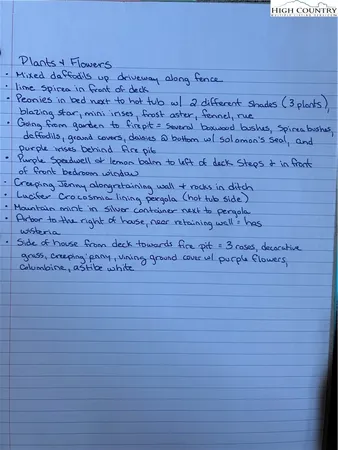 HIGH COUNTRY
Plants & Flowers
• Mixed daffodils up driveway along fence
• lime spirea in front of deck
• Peonies in bed next to hot tub w/ 2 different shades (3 plants),
blazing star, mini irises, frost aster, fennel, rue
• Going from garden to firepit = several boxwood bushes, spirea bushes,
daffodils, ground covers, daisies @ bottom w/ solomon's seal, and
purple irises behind fire pit
• Purple Speedwell & lemon balm to left of deck steps & in front
of front bedroom window
• Creeping Jenny along retaining wall & rocks in ditch
• Lucifer Crocosmia lining pergola (hot tub side)
• Mountain mint in silver container next to pergola
• Arbor to the right of house, near retaining wall = has
wisteria
• Side of house from deck towards fire pit = 3 roses, decorative
grass, creeping jenny, vining ground cover w/ purple flowers,
columbine, astilbe white